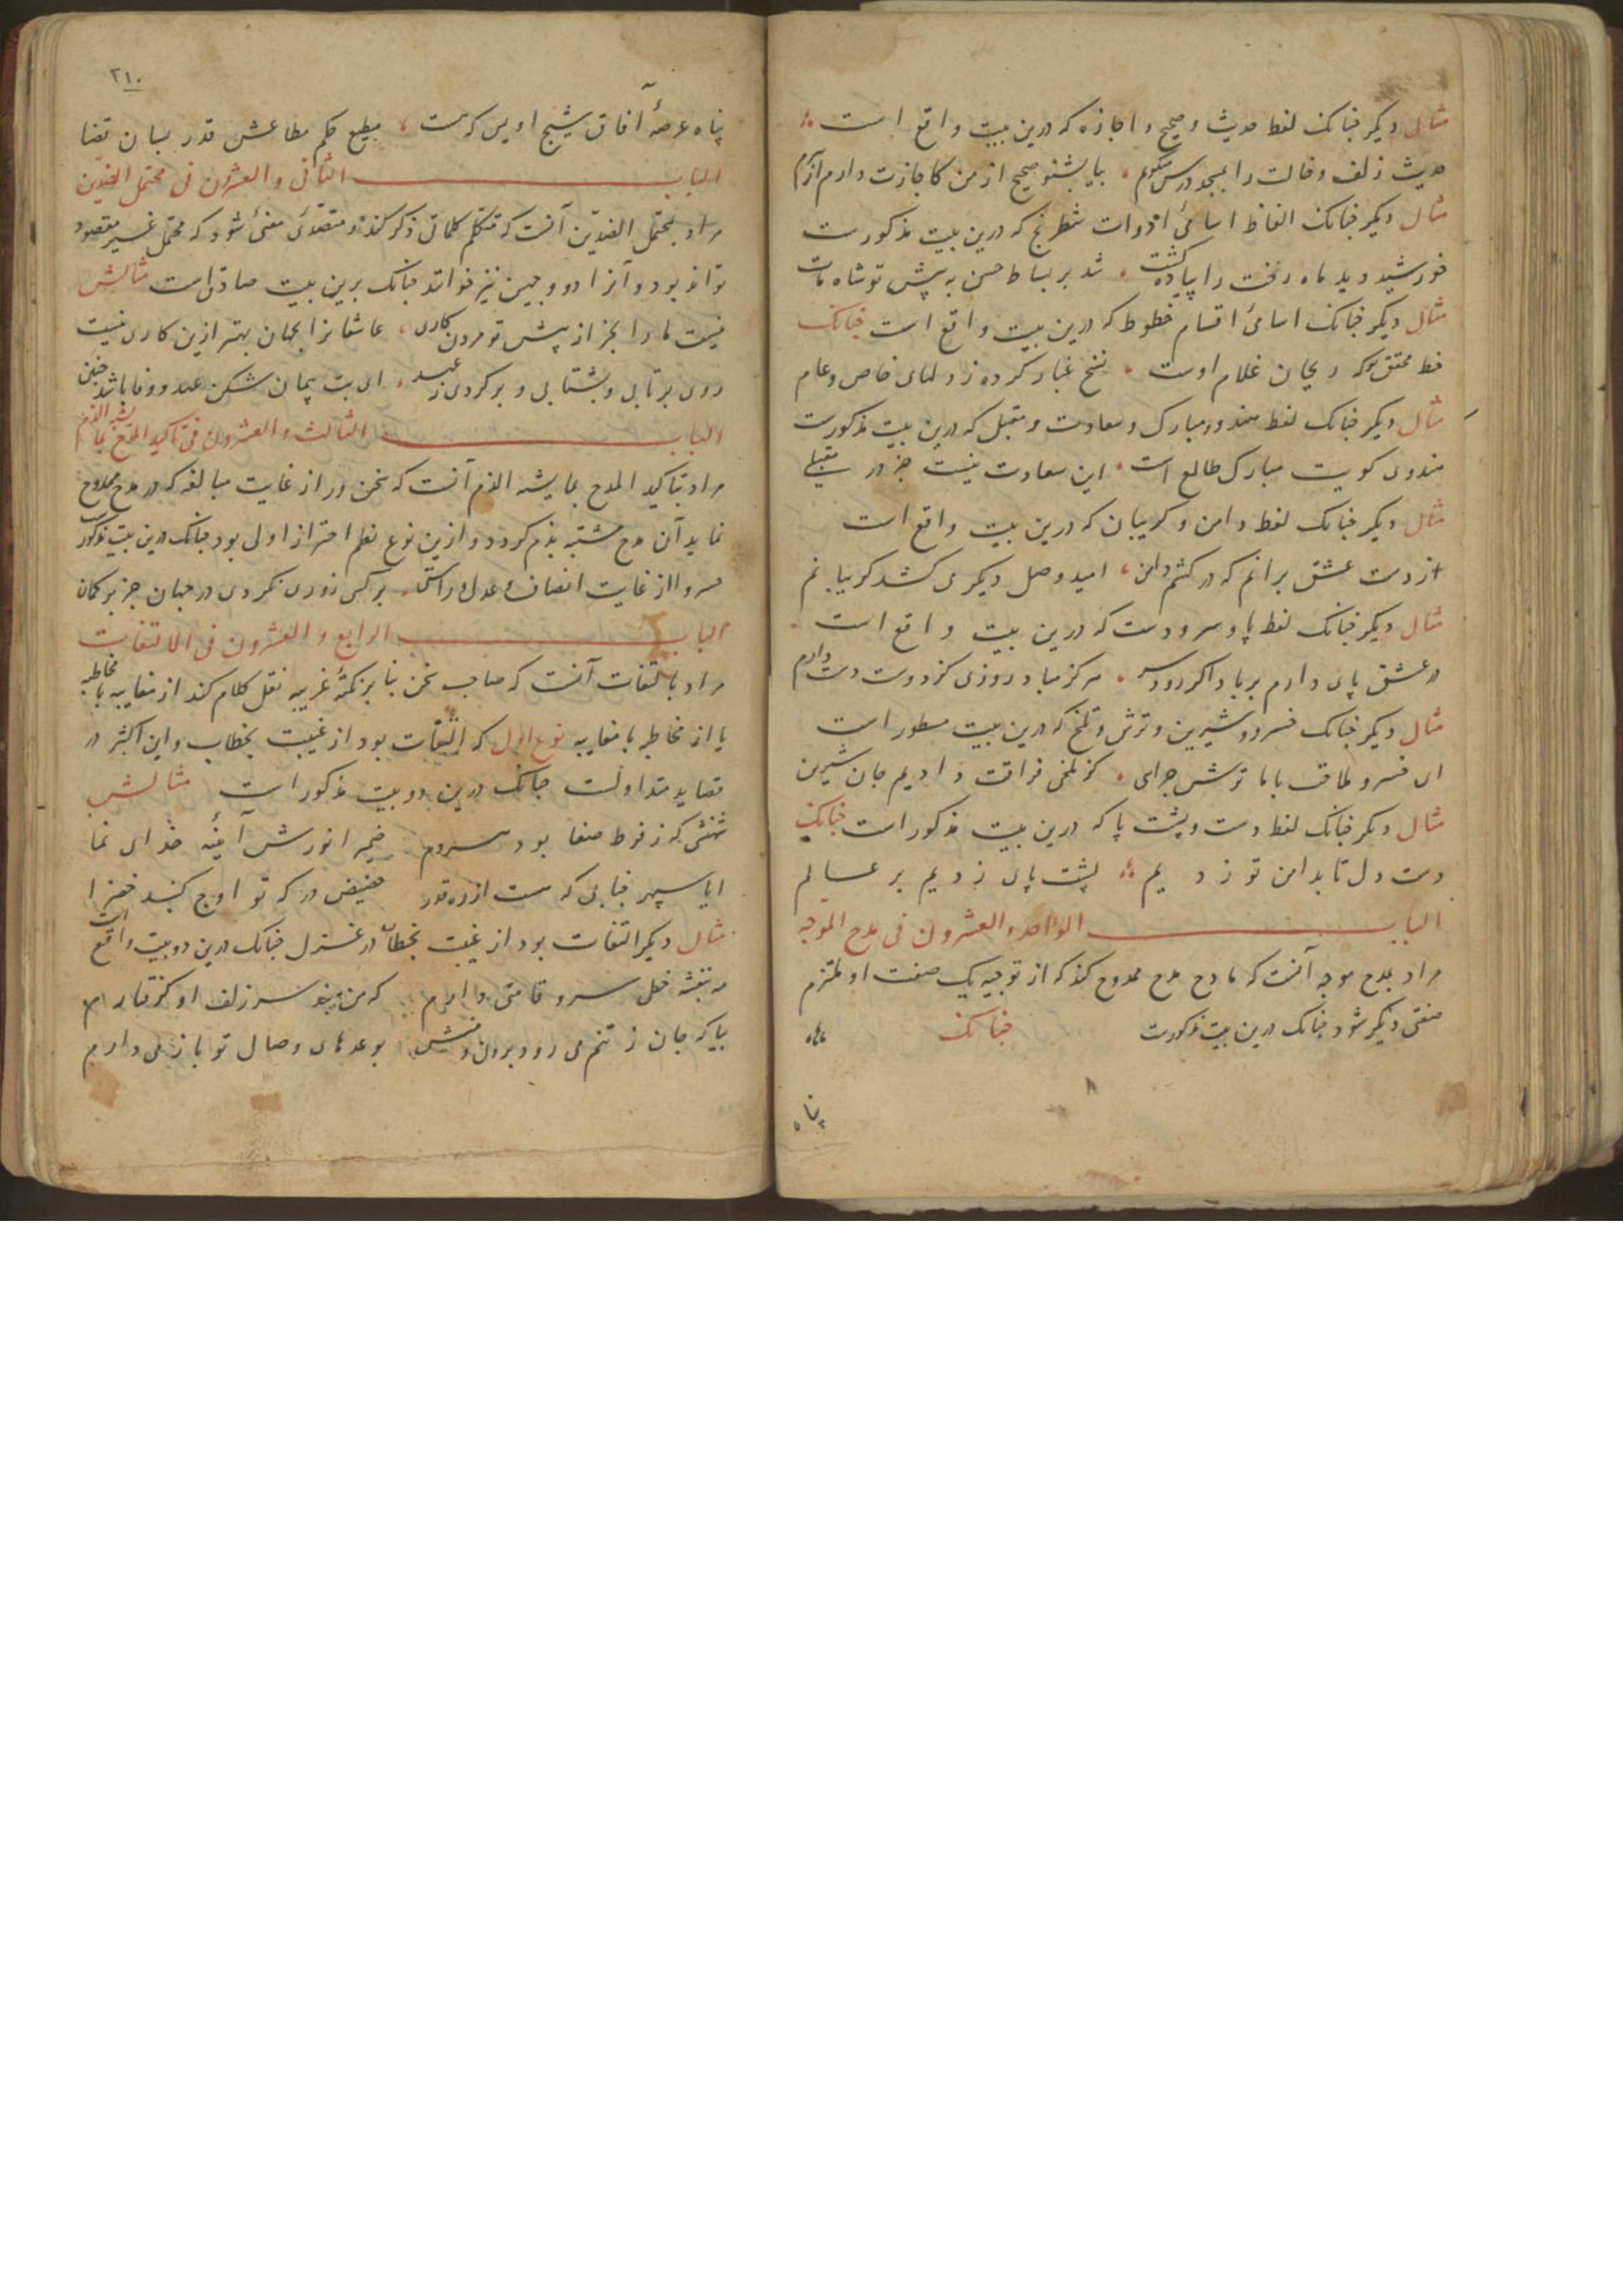 مثال دیگر چنانک لفظ حدیث و صحیح و اجازه که درین بیت واقع است
حدیث زلف و خالت را بمسجد درس میگویم بیا بشنو صحیح از من کاجازت دارم از آنم
مثال دیگر چنانک الفاظ اسامی ادوات شطرنج که درین بیت مذکورست
خورشید دید ماه رخت را پیاده گشت شد بر بساط حسن به پیش تو شاه مات
مثال دیگر چنانک اسامی اقسام خطوط که درین بیت واقع است چنانک
خط محقق که ریحان غلام اوست نسخ غبار کرده ز دلهای خاص و عام
مثال دیگر چنانک لفظ هندو و مبارک و سعادت و مقبل که درین بیت مذکورست
هندوی کویت مبارک طالع است این سعادت نیست جز در مقبلی
مثال دیگر چنانک لفظ دامن و کریبان که درین بیت واقع است
از دست عشق برانم که در کشم دامن امید وصل دیگر می کشد کریبانم
مثال دیگر چنانک لفظ پا و سر و دست که درین بیت واقع است
در عشق پای دارم بر باد اگر رود سر هرگز مباد روزی کز دوست دست دارم
مثال دیگر چنانک خسرو و شیرین و ترش و تلخ که درین بیت مسطور است
ای خسرو ملاقت با ما ترش چرایی کز تلخی فراقت دادیم جان شیرین
مثال دیگر چنانک لفظ دست و پشت پا که درین بیت مذکور است چنانک
دست دل تا بدامن تو زدیم پشت پای زدیم بر عالم
الباب الواحد و العشرون فی مدح الموجه
مراد بمدح موجه آنست که مادح مدح ممدوح کند که از توجیه یک صفت او ملتزم
صفتی دیگر شود چنانک درین بیت مذکورست چنانک
پناه
۲۱۰
پناه عرصهٔ آفاق شیخ اویس که هست مطیع حکم مطاعش قدر بسان قضا
الباب الثانی و العشرون فی محتمل الضدین
مراد بمحتمل الضدین آنست که متکلم کلماتی ذکر کند و متصدی معنی شود که محتمل غیر مقصود
تواند بود و آنرا ذو وجهین نیز خوانند چنانک برین بیت صادق است مثالش
نیست ما را بجز از پیش تو مردن کاری عاشقانرا بجهان بهتر ازین کاری نیست
روی برتابی و بشتابی و برگردی ز عهد ای بت پیمان شکن عهد و وفا باشد چنین
الباب الثالث و العشرون فی تاکید المدح بما یشبه الذم
مراد بتاکید المدح بما یشبه الذم آنست که سخن ور از غایت مبالغه که در مدح ممدوح
نماید آن مدح مشتبه بذم گردد و ازین نوع نظم احتراز اولی بود چنانک درین بیت مذکور
خسروا از غایت انصاف و عدل و راستی بر کسی زوری نکردی در جهان جز بر کمان
الباب الرابع و العشرون فی الالتفات
مراد بالتفات آنست که صاحب سخن بنا بر نکتهٔ غریبه نقل کلام کند از مغایبه با مخاطبه
یا از مخاطبه با مغایبه نوع اول که التفات بود از غیبت بخطاب و این اکثر در
قصاید متداولست چنانک درین دو بیت مذکور است مثالش
شهنشی که ز فرط صفا بود هر دم ضمیر انورش آئینه خدای نما
ایا سپهر جنابی که هست از ره قدر حضیض درگه تو اوج گنبد خضرا
مثال دیگر التفات بود از غیبت بخطاب در غزل چنانک درین دو بیت واقع است
مه بنفشه خط سرو قامتی دارم که من چو سر زلف او گرفتارم
بیا که جان ز تنم می رود برون و منش بوعدهای وصال تو باز می دارم